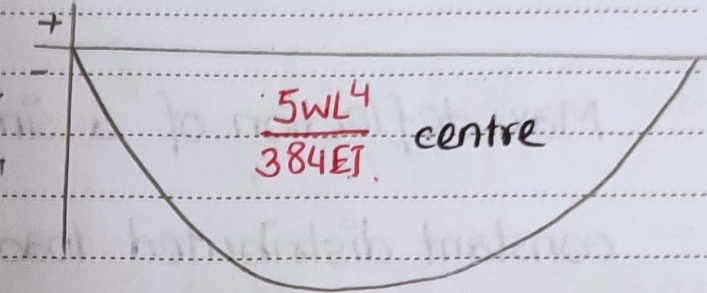 +
-
5WL⁴
384EI. centre